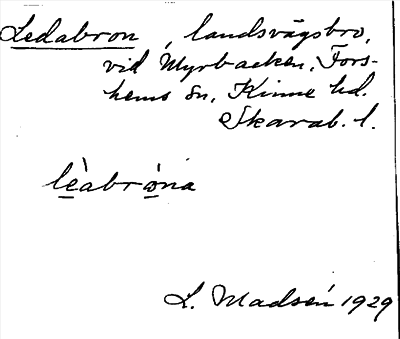 Ledabron, landsvägsbro,
vid Myrbacken, Fors-
hems sn, Kinne hd.
Skarab. l.
lèabròna
L. Madsén 1929